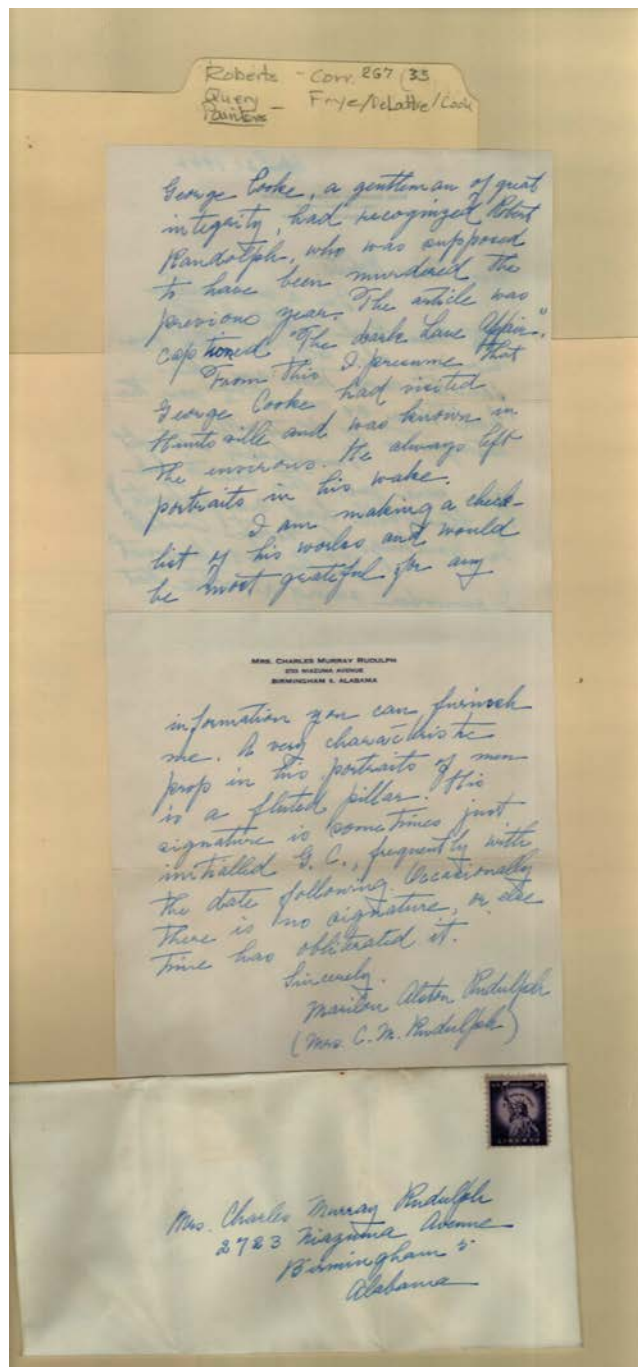 Roberts - Corr. 267 (33)
Query - Frye/Delattre/Cook
Painters
George Cooke, a gentleman of great
integrity, had recognized Robert
Randolph, who was supposed
to have been murdered the
previous year. The article was
captioned "The dark Love Affair."
From this I presume that
George Cooke had visited
Huntsville and was known in
the environs. He always left
portraits in his wake.
I am making a check-
list of his works and would
be most grateful for any
MRS. CHARLES MURRAY RUDULPH
2723 NIAZUMA AVENUE
BIRMINGHAM 5, ALABAMA
information you can furnish
me. A very characteristic
prop in his portraits of men
is a fluted pillar. His
signature is sometimes just
initialled G. C., frequently with
the date following. Occasionally
there is no signature, or else
time has obliterated it.
Sincerely.
Marilou Alston Rudulph
(Mrs. C. M. Rudulph)
LIBERTY
Mrs. Charles Murray Rudulph
2723 Niazuma Avenue
Birmingham 5
Alabama